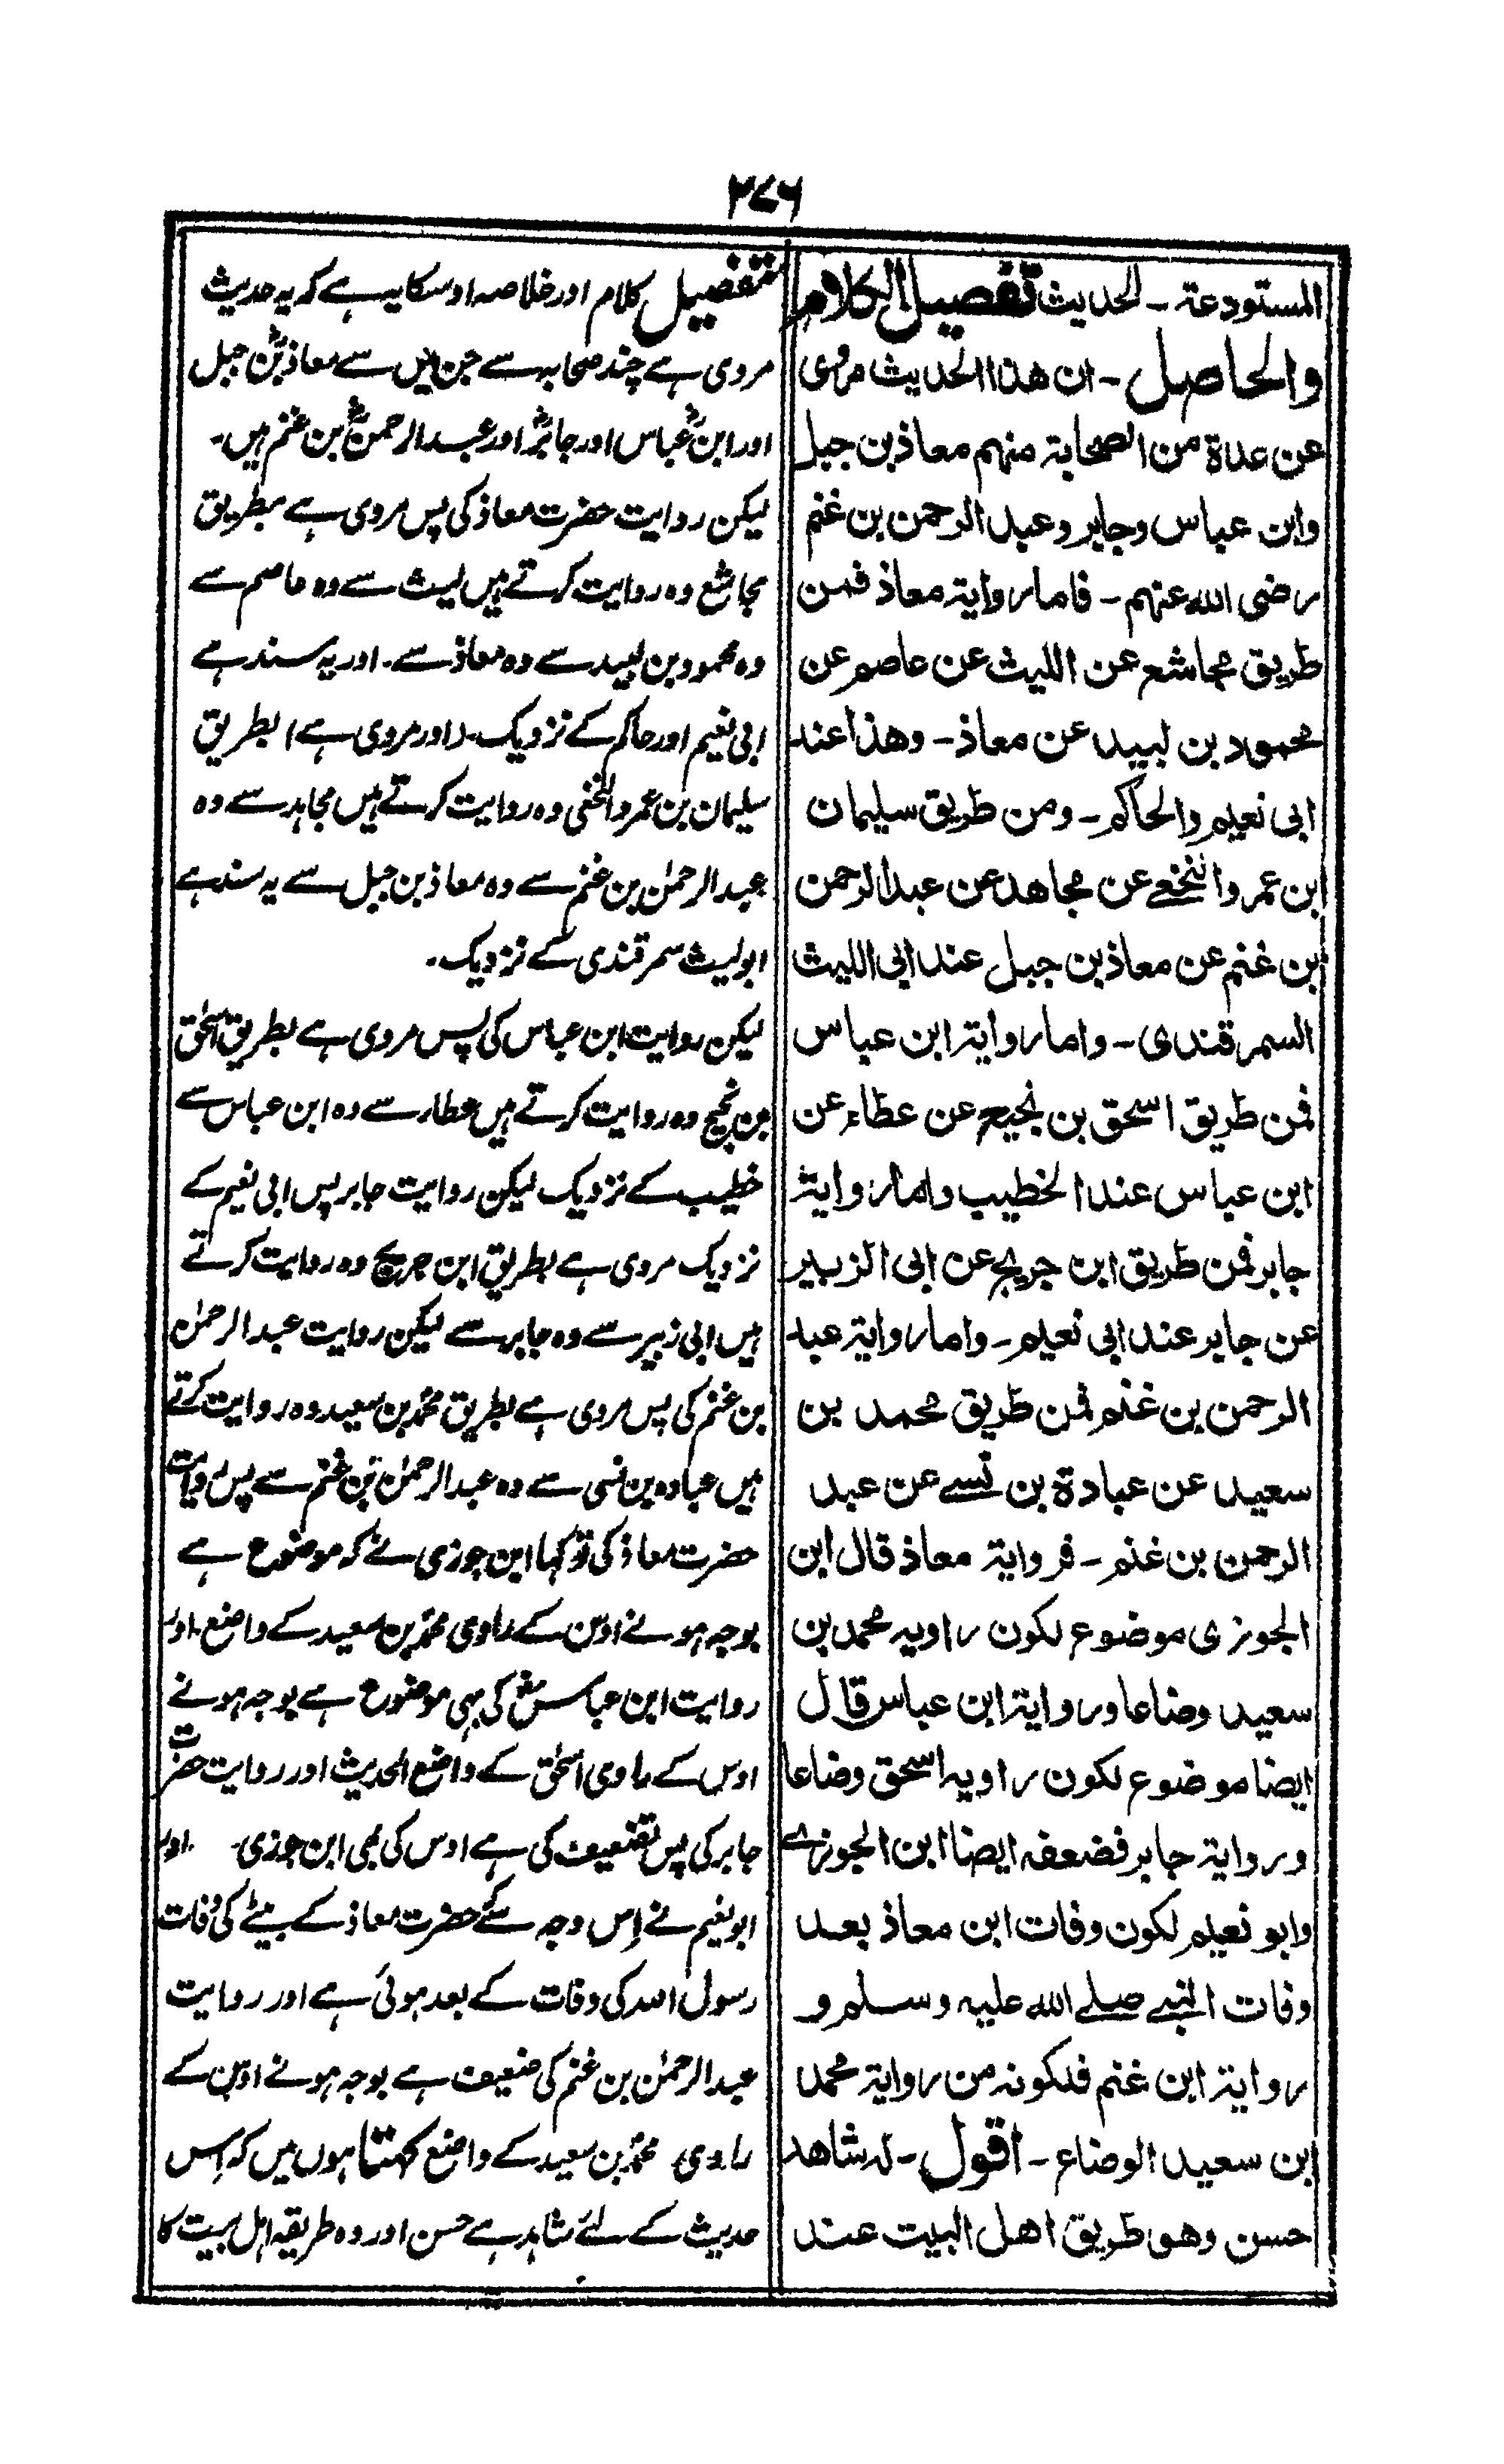 ۲۷۶
المستودعة ۔ الحدیث تفصیل الکلام
والحاصل ۔ ان هذا الحدیث مروی
عن عدة من الصحابة منهم معاذ بن جبل
وابن عباس وجابر وعبد الرحمن بن غنم
رضی الله عنهم ۔ فاما روایة معاذ فمن
طریق مجاشع عن اللیث عن عاصم عن
محمود بن لبید عن معاذ ۔ وهذا عند
ابی نعیم والحاکم ۔ ومن طریق سلیمان
ابن عمرو النخعے عن مجاهد عن عبد الرحمن
بن غنم عن معاذ بن جبل عند ابی اللیث
السمرقندی ۔ واما روایة ابن عباس
فمن طریق اسحق بن نجیح عن عطاء عن
ابن عباس عند الخطیب واما روایة
جابر فمن طریق ابن جریج عن ابی الزبیر
عن جابر عند ابی نعیم ۔ واما روایة عبد
الرحمن بن غنم فمن طریق محمد بن
سعید عن عبادة بن نسے عن عبد
الرحمن بن غنم ۔ فروایة معاذ قال ابن
الجوزی موضوع لکون راویه محمد بن
سعید وضاعا وروایة ابن عباس قال
ایضا موضوع لکون راویه اسحق وضاعا
وروایة جابر فضعفه ایضا ابن الجوزے
وابو نعیم لکون وفات ابن معاذ بعد
وفات النبے صلے الله علیه وسلم و
روایة ابن غنم فلکونه من روایة محمد
ابن سعید الوضاع ۔ اقول ۔ له شاهد
حسن وهو طریق اهل البیت عند
تفصیل کلام اور خلاصہ اوسکا یہ ہے کہ یہ حدیث
مروی ہے چند صحابہ سے جن میں سے معاذؓ بن جبل
اور ابنؓ عباس اور جابرؓ اور عبد الرحمنؓ بن غنم ہیں۔
لیکن روایت حضرت معاذ کی پس مروی ہے بطریق
مجاشع وہ روایت کرتے ہیں لیث سے وہ عاصم سے
وہ محمود بن لبید سے وہ معاذ سے۔ اور یہ سند ہے
ابی نعیم اور حاکم کے نزدیک۔ (اور مروی ہے) بطریق
سلیمان بن عمرو النخفی وہ روایت کرتے ہیں مجاہد سے وہ
عبد الرحمٰن بن غنم سے وہ معاذ بن جبل سے یہ سند ہے
ابو لیث سمرقندی کے نزدیک۔
لیکن روایت ابن عباس کی پس مروی ہے بطریق اسحٰق
بن نجیح وہ روایت کرتے ہیں عطار سے وہ ابن عباس سے
خطیب کے نزدیک لیکن روایت جابر پس ابی نعیم کے
نزدیک مروی ہے بطریق ابن جریج وہ روایت کرتے
ہیں ابی زبیر سے وہ جابر سے لیکن روایت عبد الرحمٰن
بن غنم کی پس مروی ہے بطریق محمدؐ بن سعید وہ روایت کرتے
ہیں عبادہ بن نسی سے وہ عبد الرحمٰن بن غنم سے پس روایت
حضرت معاذ کی تو کہا ابن جوزی نے کہ موضوع ہے
بوجہ ہونے اوس کے راوی محمدؐ بن سعید کے واضع۔ اور
روایت ابن عباسؓ کی بہی موضوع ہے بوجہ ہونے
اوس کے راوی اسحٰق کے واضع الحدیث اور روایت حضرت
جابر کی پس تضعیف کی ہے اوس کی بھی ابن جوزی۔ اور
ابو نعیم نے اِس وجہ سے کہ حضرت معاذ کے بیٹے کی وفات
رسول اللہ کی وفات کے بعد ہوئی ہے اور روایت
عبد الرحمٰن بن غنم کی ضعیف ہے بوجہ ہونے اوس کے
راوی محمدؐ بن سعید کے واضع کہتا ہوں میں کہ اِس
حدیث کے لئے شاہد ہے حسن اور وہ طریقہ اہل بیت کا